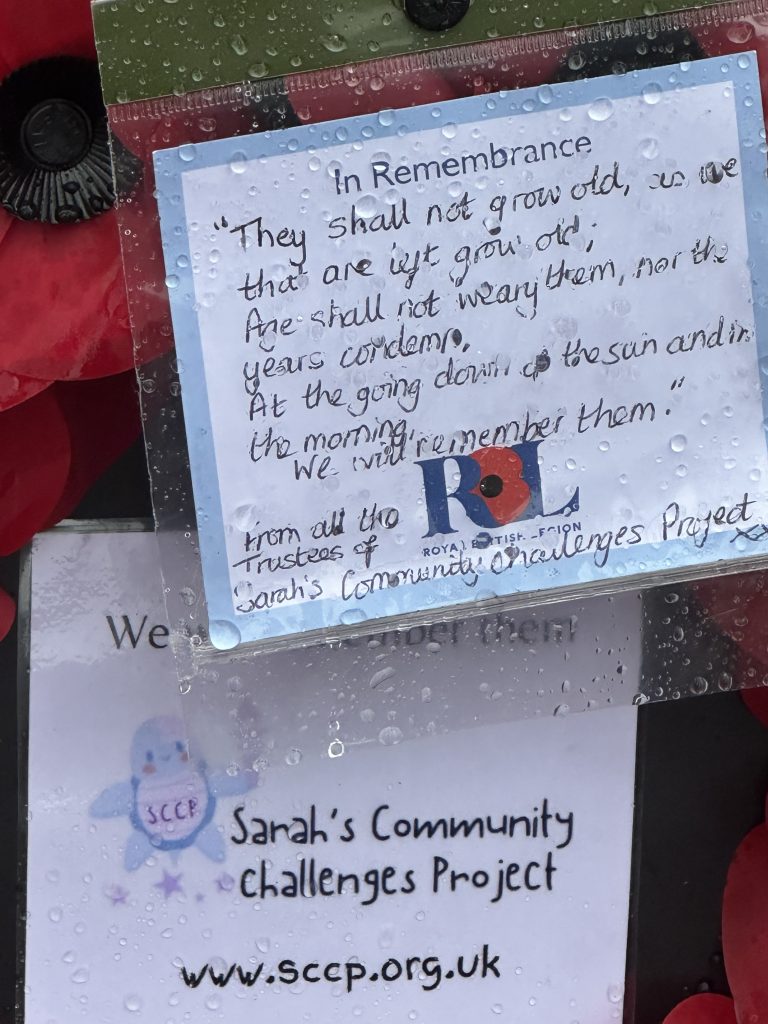 In Remembrance
"They shall not grow old, as we
that are left grow old;
Age shall not weary them, nor the
years condemn.
At the going down of the sun and in
the morning,
We will remember them."
RBL
ROYAL BRITISH LEGION
From all the
Trustees of
Sarah's Community Challenges Project
We will remember them
SCCP
Sarah's Community
Challenges Project
www.sccp.org.uk